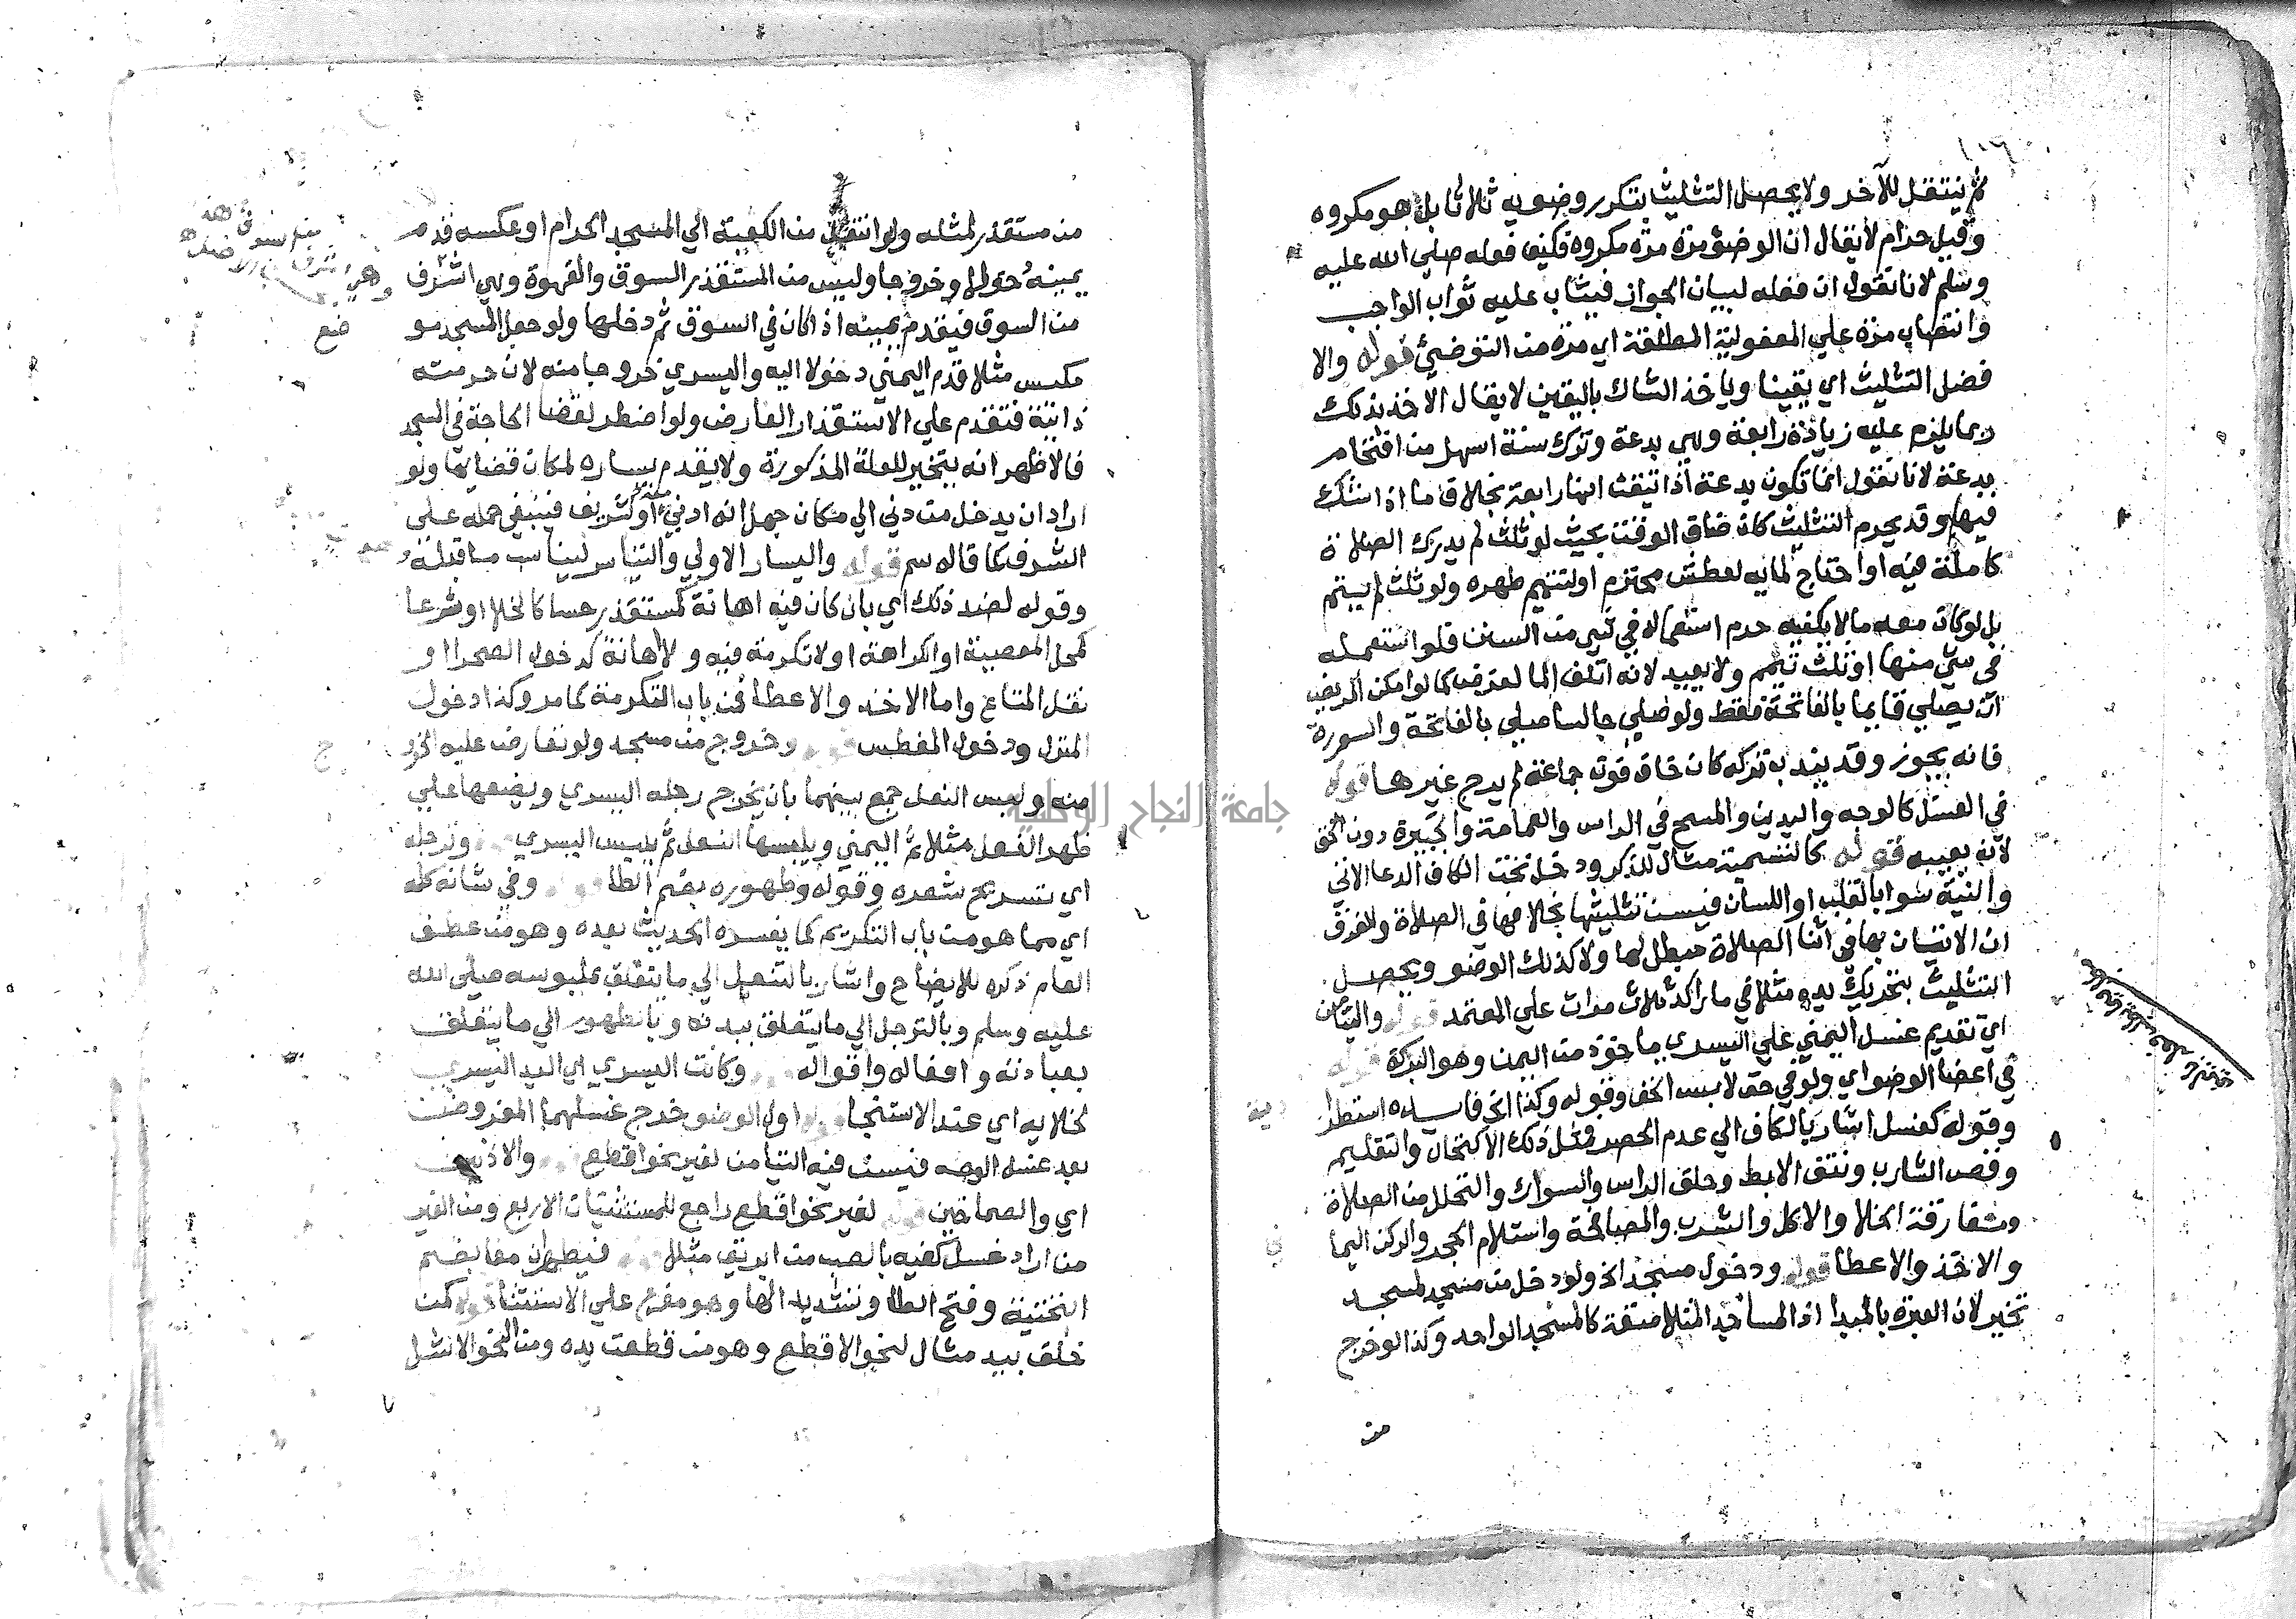 ثم ينتقل للآخر ولا يحصل التثليث بتكرر وضوبه ثلاثا بل هو مكروه
وقيل حرام لا يقال ان الوضؤ مرة مرة مكروه فكيف فعله صلي الله عليه
وسلم لانا نقول ان فعله لبيان الجواز فيثاب عليه ثواب الواجب
وانتصاب مرة علي المفعولية المطلقة اي مرة من التوضئ قوله والا
فضل التثليث اي يقينا وياخذ الشاك باليقين لا يقال الاخذ بذلك
ربما يلزم عليه زيادة رابعة وهي بدعة وترك سنة اسهل من اقتحام
بدعة لانا نقول انما تكون بدعة اذا تيقن انها رابعة بخلاف ما اذا شك
فيها وقد يحرم التثليث كان ضاق الوقت بحيث لو ثلث لم يدرك الصلاة
كاملة فيه او احتاج لمايه لعطش محترم او لتتميم طهره ولو ثلث لم يتم
بل لو كان معه ما لا يكفيه حرم استعماله في شي من السنن فلو استعمله
في شي منها او ثلث تيمم ولا يعيد لانه اتلف الما لغرض كما لو امكن المريض
ان يصلي قايما بالفاتحة فقط ولو صلي جالسا صلي بالفاتحة والسورة
فانه يجوز وقد يندب تركه كان خاف فوت جماعة لم يرج غيرها قوله
في الغسل كالوجه واليدين والمسح في الراس والعمامة والجبيرة دون الخف
لانه يعيبه قوله كالتسمية مثال للذكر ودخل تحت الكاف الدعا الاتي
والنية سوا بالقلب او اللسان فيسن تثليثها بخلافها في الصلاة والفرق
ان الاتيان بها في اثنا الصلاة مبطل لها ولا كذلك الوضو ويحصل
التثليث بتحريك يده مثلا في ما راكد ثلاث مرات علي المعتمد قوله والتيامن
اي تقديم غسل اليمني علي اليسري ماخوذ من اليمن وهو البركة قوله
في اعضا الوضو اي ولو في حق لابس الخف وقوله وكذا الخ فايدة استطرا
وقوله كغسل اشار بالكاف الي عدم الحصر فمثل ذلك الاكتحال والتقليم
وقص الشارب ونتف الابط وحلق الراس والسواك والتحلل من الصلاة
ومفارقة الخلا والاكل والشرب والمصافحة واستلام الحجر والركن اليما
والاخذ والاعطا قوله ودخول مسجد الخ ولو دخل من مسجد لمسجد
تخير لان العبرة بالمبدا اذ المساجد المتلاصقة كالمسجد الواحد وكذا لو خرج
من
من مستقذر لمثله ولو انتقل من الكعبة الي المسجد الحرام او عكسه قدم
يمينه دخولا وخروجا وليس من المستقذر السوق والقهوة وهي اشرف
من السوق فيقدم يمينه اذا كان في السوق ثم دخلها ولو جعل المسجد مو
ضع
مكس مثلا قدم اليمني دخولا اليه واليسري خروجا منه لان حرمته
ذاتية فتقدم علي الاستقذار العارض ولو اضطر لقضا الحاجة في المسجد
فالاظهر انه يتخير للعلة المذكورة ولا يقدم يساره لمكان قضايها ولو
اراد ان يدخل من دني الي مكان جهل انه ادني او شريف فينبغي حمله علي
الشرف كما قاله سم قوله واليسار الاولي والتياسر ليناسب ما قبله
وقوله لضد ذلك اي بان كان فيه اهانة كمستقذر حسا كالخلا او شرعا
كمحل المعصية او الكراهة او لا تكرمة فيه ولا اهانة كدخول الصحرا او
نقل المتاع واما الاخذ والاعطا فمن باب التكرمة كما مر وكذا دخول
المنزل ودخول المغطس قوله وخروج من مسجد ولو تعارض عليه الخرو
ج
منه ولبس النعل جمع بينهما بان يخرج رجله اليسري ويضعها علي
ظهر النعل مثلا ثم اليمني ويلبسها النعل ثم يلبس اليسري قوله وترجله
اي تسريح شعره وقوله وطهوره بضم الطا قوله وفي شانه كله
اي مما هو من باب التكريم كما يفسره الحديث بعده وهو من عطف
العام ذكره للايضاح واشار بالتنعل الي ما يتعلق بملبوسه صلي الله
عليه وسلم وبالترجل الي ما يتعلق ببدنه وبالطهور الي ما يتعلق
بعبادته وافعاله واقواله قوله وكانت اليسري اي اليد اليسري
لخلايه اي عند الاستنجا قوله اول الوضو خرج غسلهما المفروض
بعد غسل الوجه فيسن فيه التيامن لغير نحو اقطع قوله والاذنين
اي والصماخين قوله لغير نحو اقطع راجع للمستثنيات الاربع ومن الغير
من اراد غسل كفيه بالصب من ابريق مثلا قوله فيطهران معا بضم
التحتية وفتح الطا وتشديد الها وهو مفرع علي الاستثنا قوله كمن
خلق بيد مثال لنحو الاقطع وهو من قطعت يده ومن النحو الاشل
جامعة النجاح الوطنية